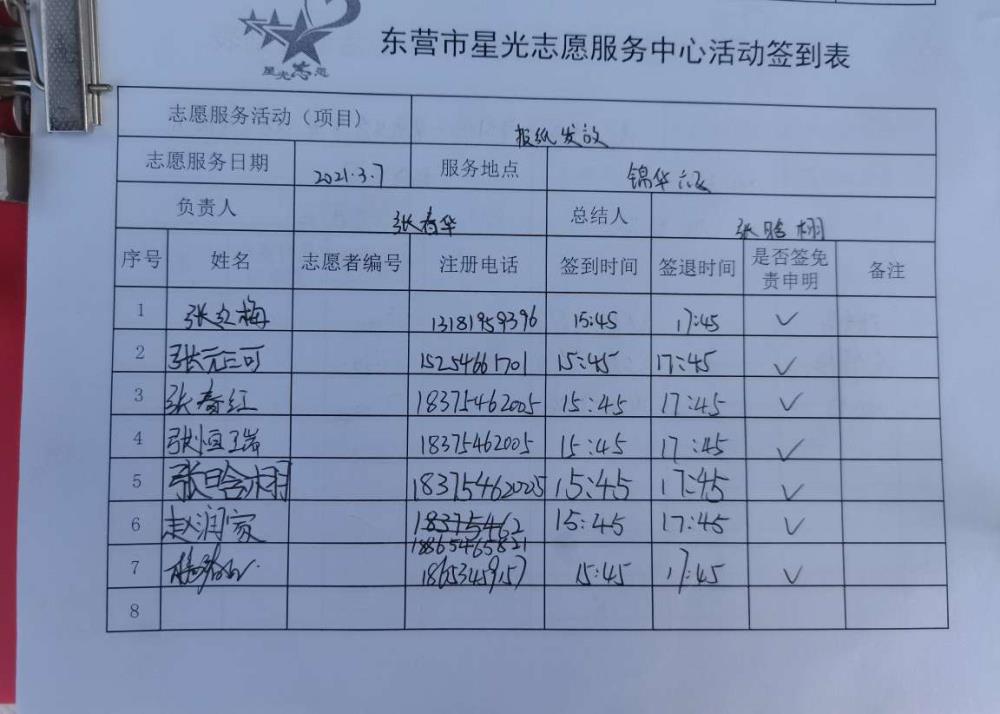 星光志愿
东营市星光志愿服务中心活动签到表
志愿服务活动（项目） 报纸发放
志愿服务日期 2021.3.7 服务地点 锦华六区
负责人 张春华 总结人 张晗栩
序号 姓名 志愿者编号 注册电话 签到时间 签退时间 是否签免责申明 备注
1 张立梅 13181959396 15:45 17:45 ✓
2 张元可 15254661701 15:45 17:45 ✓
3 张春红 18375462005 15:45 17:45 ✓
4 18375462005 15:45 17:45 ✓
5 张晗栩 18375462005 15:45 17:45 ✓
6 赵润家 18375462 15:45 17:45 ✓
18865465821
7 18653459157 15:45 17:45 ✓
8